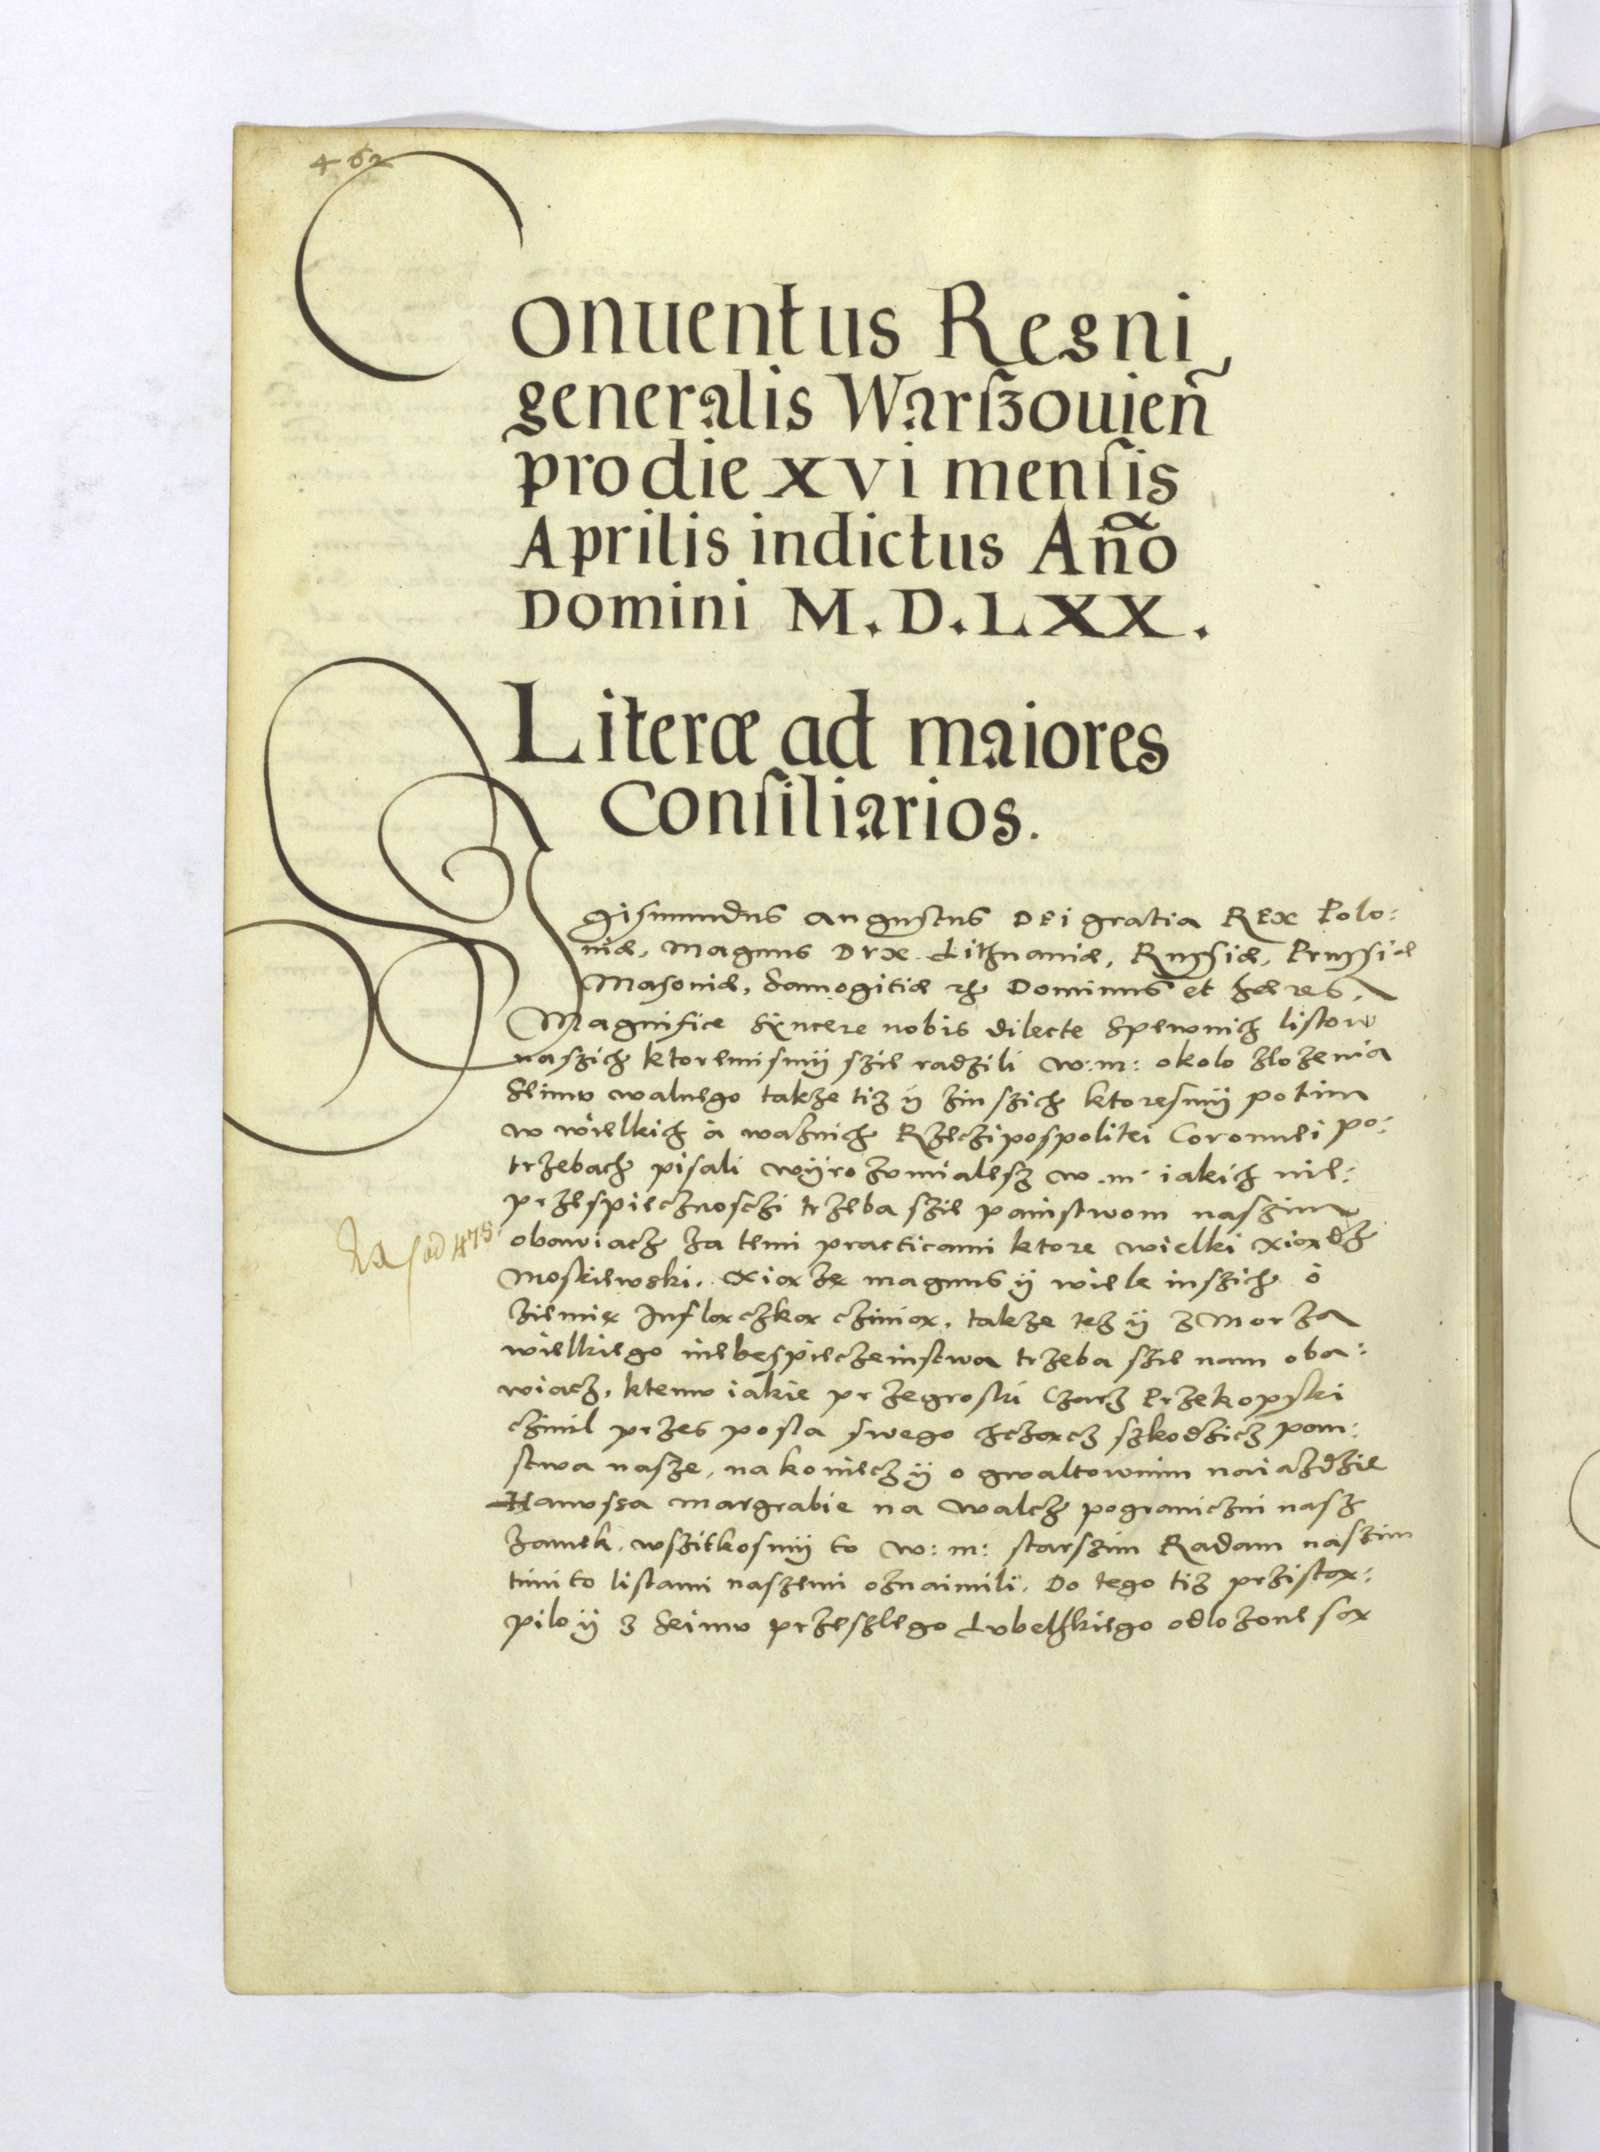 462
Conuentus Regni
generalis Warſzouien̄
pro die XVI menſis
Aprilis indictus An̄o
Domini M.D.LXX.
Literæ ad maiores
Conſiliarios.
Sigismundus augustus Dei gratia Rex Polo:
niæ, Magnus Dux Lithuaniæ, Russiæ, Prussiæ
Masoniæ, Samogitiæ etc Dominus et hæres.
Magnifice syncere nobis dilecte Spewnich listow
naszich ktoremismÿ szie radzili w: m: okolo zlozenia
Seimu walnego takze tiz ÿ zinszich ktoresmÿ potim
w wielkich a waznich Rzeczipospolitei Coronnei po:
trzebach pisali wÿrozumialesz w. m. iakich nie:
przespiecznosczi trzeba szie painstwom naszim
obawiacz za temi practicami ktore wielki xiądz
Moskiewski. Xiąze magnus ÿ wiele inszich o
ziemię Inflączką czinią, takze tez ÿ z Morza
wielkiego niebespieczeinstwa trzeba szie nam oba:
wiacz, ktemu iakie przegroski Czarz Przekopski
czinil przes posla swego chczącz szkodzicz pain:
stwa nasze, nakoniecz ÿ o gwaltownim naiazdzie
Hanussa margrabie na Walcz pograniczni nasz
zamek. wszitkosmÿ to w: m: starszim Radam naszim
timito listami naszemi oznaimili. Do tego tiz przistą:
pilo ÿ z Seimu przeszlego Lubelskiego odlozone są
od 475